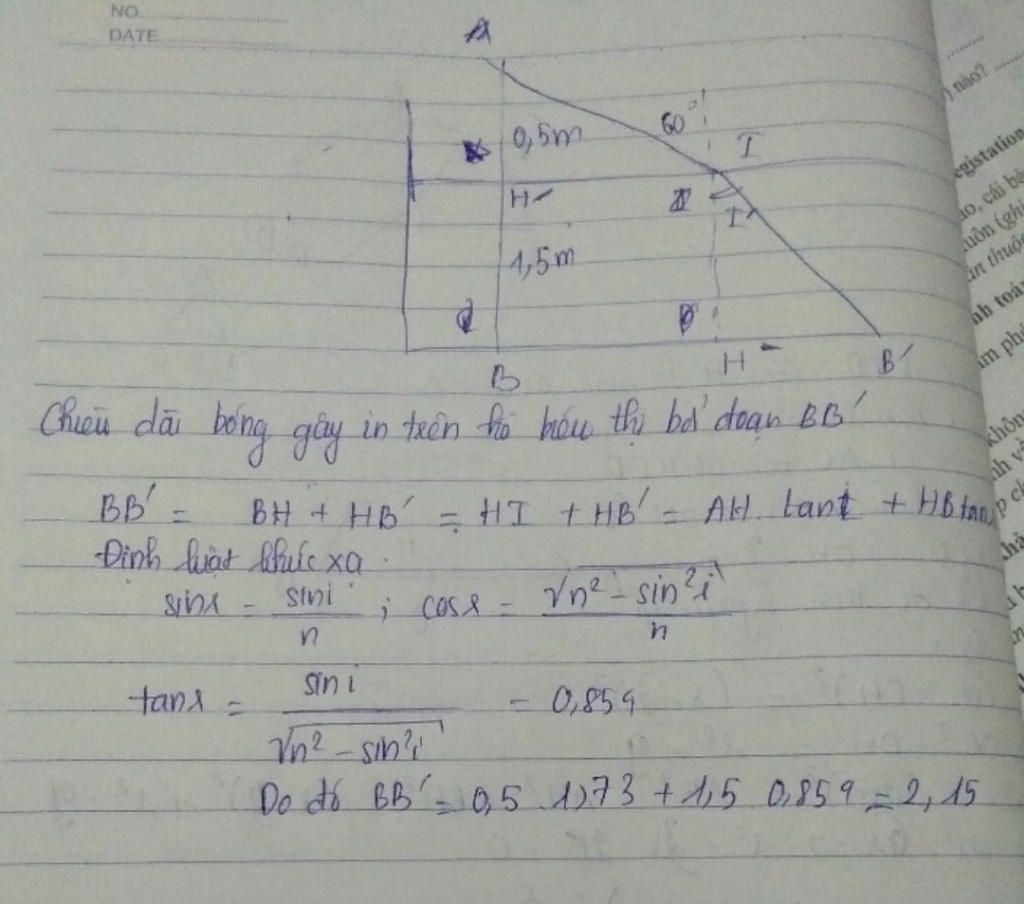 NO.
DATE
A
60°
0,5m
I
H
I'
1,5m
B
H
B'
Chiều dài bóng gậy in trên hồ biểu thị bởi đoạn BB'
BB' = BH + HB' = HI + HB' = AH tani + HB tan
Định luật khúc xạ
sinr = sini / n ; cosr = √n² - sin²i / n
tanr = sini / √n² - sin²i = 0,859
Do đó BB' = 0,5 1,73 + 1,5 0,859 = 2,15
) nào?
egistation
ao, cái bả
uôn (ghi
ần thuộc
nh toán
ăm ph
không
nh v
p c